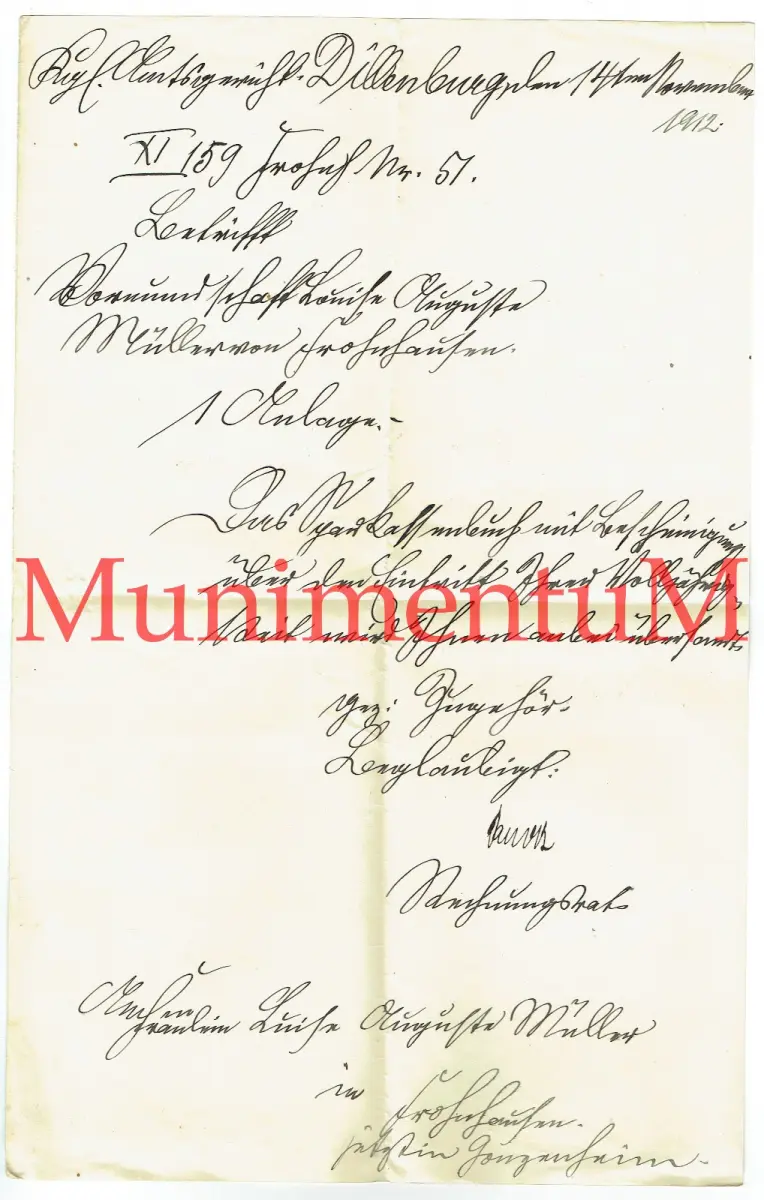 Kgl. Amtsgericht. Dillenburg, den 14ten November
1912.
XI 159 Frohnh Nr. 51.
Betrifft
Vormundschaft Louise Auguste
Müller von Frohnhausen.
1 Anlage.-
Das Sparkassenbuch mit Bescheinigung
über den Eintritt Ihrer Volljährig-
MunimentuM
keit wird Ihnen anbei übersandt.
gez: Zugehör.
Beglaubigt:
Rechnungsrat.
An
Fräulein Luise Auguste Müller
in Frohnhausen.
jetzt in Gonzenheim.